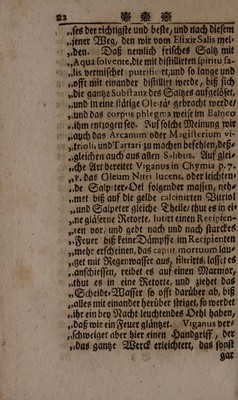 22
„ses der richtigste und beste, und nach diesem
„jener Weg, den wir vom Elixir Salis mel-
„den. Daß nemlich frisches Saltz mit
„Aqua solvente, die mit distillirten spiritu sa-
„lis vermischet putrificiret, und so lange und
„offt mit einander distillirt werde, biß sich
„die gantze Substanz des Saltzes aufgelöset,
„und in eine stätige Oleität gebracht werde/
„und das corpus phlegma weise im Balneo
„ihm entzogen sey. Auf solche Meinung wir
„auch das Arcanum oder Magisterium vi-
„trioli, und Tartari zu machen befehlen, deß-
„gleichen auch aus allen Salibus. Auf glei-
„che Art bereitet Viganus in Chymia p. 7.
„8. das Oleum Nitri lucens, oder leuchten-
„de Salpeter-Oel folgender massen, neh-
„met biß auf die gelbe calcinirten Vitriol
„und Salpeter gleiche Theile/ thut es in ei-
„ne gläserne Retorte, lutirt einen Recipien-
„ten vor, und gebt nach und nach starckes
„Feuer biß keine Dämpffe im Recipienten
„mehr erscheinen, das caput mortuum lau-
„get mit Regenwasser aus, filtrirts, lasset es
„anschiessen, reibet es auf einen Marmor,
„thut es in eine Retorte, und ziehet das
„Scheide-Wasser so offt darüber ab, biß
„alles mit einander herüber steiget, so werdet
„ihr ein bey Nacht leuchtendes Oehl haben,
„daß wie ein Feuer gläntzet. Viganus ver-
„schweiget aber hier einen Handgriff, der
„das gantze Werck erleichtert, das sonst
gar